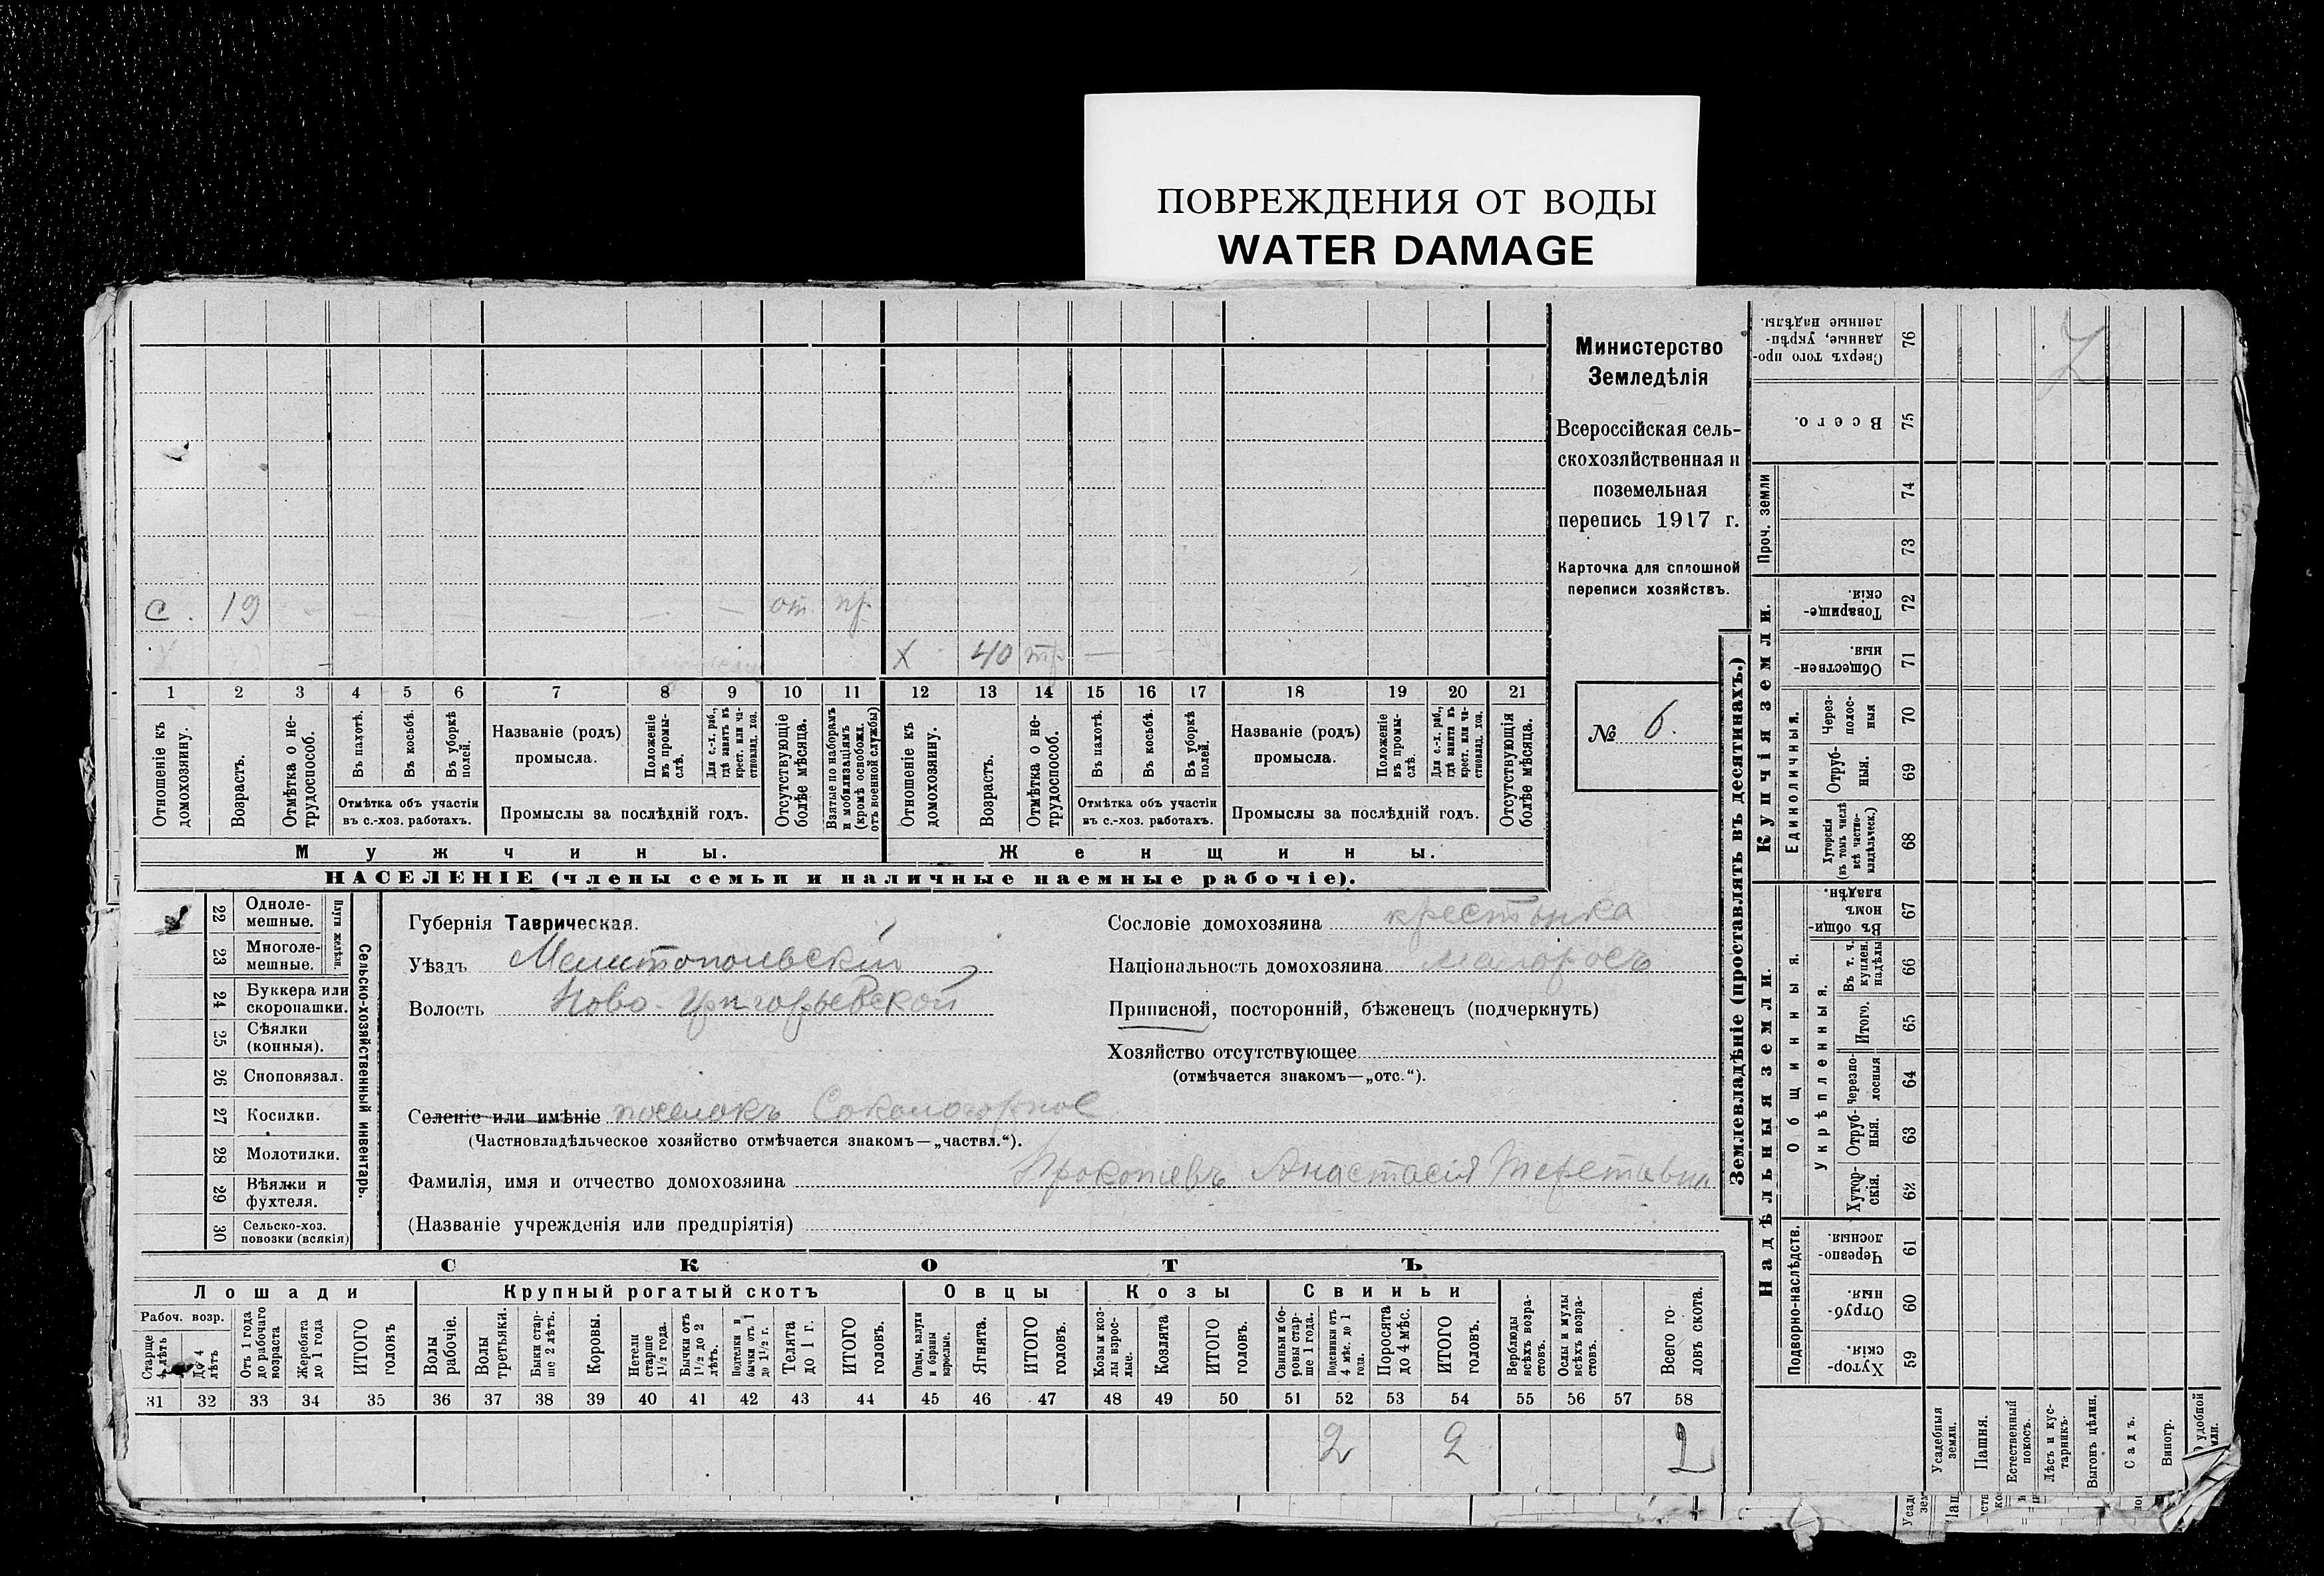 ПОВРЕЖДЕНИЯ ОТ ВОДЫ
WATER DAMAGE
Министерство
Земледѣлія
Всероссійская сель-
скохозяйственная и
поземельная
перепись 1917 г.
Карточка для сплошной
переписи хозяйствъ.
№ 6.
с. 19 — — — — — — от. пр.
Х 40 тр. — —
1 2 3 4 5 6 7 8 9 10 11 12 13 14 15 16 17 18 19 20 21
Отношеніе къ домохозяину.
Возрастъ.
Отмѣтка о не-трудоспособ.
Въ пахотѣ.
Въ косьбѣ.
Въ уборкѣ полей.
Отмѣтка объ участіи
въ с.-хоз. работахъ.
Названіе (родъ)
промысла.
Положеніе въ промы-слѣ.
Для с.-х. раб., гдѣ занятъ въ крест. или ча-стновлад. хоз.
Промыслы за послѣдній годъ.
Отсутствующіе болѣе мѣсяца.
Взятые по наборамъ и мобилизаціямъ (кромѣ освобожд. отъ военной службы)
Отношеніе къ домохозяину.
Возрастъ.
Отмѣтка о не-трудоспособ.
Въ пахотѣ.
Въ косьбѣ.
Въ уборкѣ полей.
Отмѣтка объ участіи
въ с.-хоз. работахъ.
Названіе (родъ)
промысла.
Положеніе въ промы-слѣ.
Для с.-х. раб., гдѣ занята въ крест. или ча-стновлад. хоз.
Промыслы за послѣдній годъ.
Отсутствующія болѣе мѣсяца.
Мужчины.
Женщины.
НАСЕЛЕНІЕ (члены семьи и наличные наемные рабочіе).
22 Одноле-мешные.
23 Многоле-мешные.
Плуги желѣзн.
24 Буккера или скоропашки.
25 Сѣялки (конныя).
26 Сноповязал.
27 Косилки.
28 Молотилки.
29 Вѣялки и фухтеля.
30 Сельско-хоз. повозки (всякія)
Сельско-хозяйственный инвентарь.
Губернія Таврическая.
Уѣздъ Мелитопольскій
Волость Ново-Григорьевской
Селеніе или имѣніе поселокъ Сокологорное
(Частновладѣльческое хозяйство отмѣчается знакомъ—„частвл.“).
Фамилія, имя и отчество домохозяина Прокопіевъ Анастасія
(Названіе учрежденія или предпріятія)
Сословіе домохозяина крестьянка
Національность домохозяина малоросъ
Приписной, посторонній, бѣженецъ (подчеркнуть)
Хозяйство отсутствующее
(отмѣчается знакомъ—„отс.“).
СКОТЪ
Лошади
Крупный рогатый скотъ
Овцы
Козы
Свиньи
Рабоч. возр.
Старше 4 лѣтъ
До 4 лѣтъ
Отъ 1 года до рабочаго возраста
Жеребята до 1 года
ИТОГО головъ
Волы рабочіе.
Волы третьяки.
Быки стар-ше 2 лѣтъ.
Коровы.
Нетели старше 1½ года.
Бычки отъ 1½ до 2 лѣтъ.
Подтелки и бычки отъ 1 до 1½ г.
Телята до 1 г.
ИТОГО головъ.
Овцы, валухи и бараны взрослые.
Ягнята.
ИТОГО головъ.
Козы и коз-лы взрос-лые.
Козлята
ИТОГО головъ.
Свиньи и бо-ровы стар-ше 1 года.
Подсвинки отъ 4 мѣс. до 1 года.
Поросята до 4 мѣс.
ИТОГО головъ.
Верблюды всѣхъ возра-стовъ.
Ослы и мулы всѣхъ возра-стовъ.
Всего го-ловъ скота.
31 32 33 34 35 36 37 38 39 40 41 42 43 44 45 46 47 48 49 50 51 52 53 54 55 56 57 58
2 2 2
Землевладѣніе (проставлять въ десятинахъ.)
Надѣльныя земли.
Купчія земли.
Проч. земли
Сверхъ того про-данные, укрѣп-ленные надѣлы. 76
Всего. 75
74
73
Товарище-скія. 72
Обществен-ныя. 71
Единоличныя.
Через-полос-ныя 70
Отруб-ныя. 69
Хуторскія (въ томъ числѣ всѣ частно-владѣльческ.) 68
Общинныя.
Въ общи-номъ владѣн. 67
Укрѣпленныя.
Въ т. ч. куплен. надѣлы 66
Итого. 65
Черезпо-лосныя 64
Отруб-ныя. 63
Хутор-скія. 62
Подворно-наслѣдств.
Черезпо-лосныя. 61
Отруб-ныя. 60
Хутор-скія. 59
Усадебныя земли.
Пашня.
Естественный покосъ.
Лѣсъ и кус-тарникъ.
Выгонъ цѣлин.
Садъ.
Виногр.